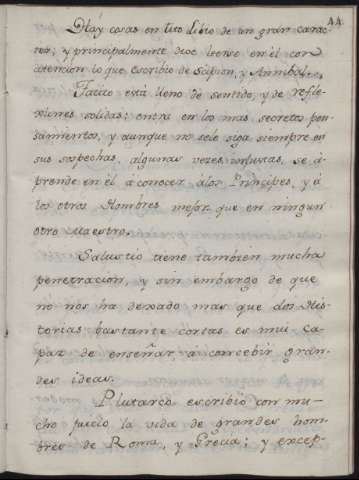 44
Háy cosas en tito libio de un gran carac-
ter, y principalmente deve leerse en él con
atencion lo que escribio de Scipion, y Annibal.
Tacito está lleno de sentido, y de refle-
xiones solidas; entra en los mas secretos pen-
samientos, y aunque no sele siga siempre en
sus sospechas, algunas veces injustas, se á-
prende en él á conocer álos Principes, y á
los otros Hombres mejor que en ningun
otro Maestro.
Salustio tiene tambien mucha
penetracion, y sin embargo de que
no nos ha dexado mas que dos His-
torias bastante cortas es mui ca-
paz de enseñar a concebir gran-
des ideas.
Plutarco escribió con mu-
cho juicio la vida de grandes hom-
bres de Roma, y Grecia; y excep-